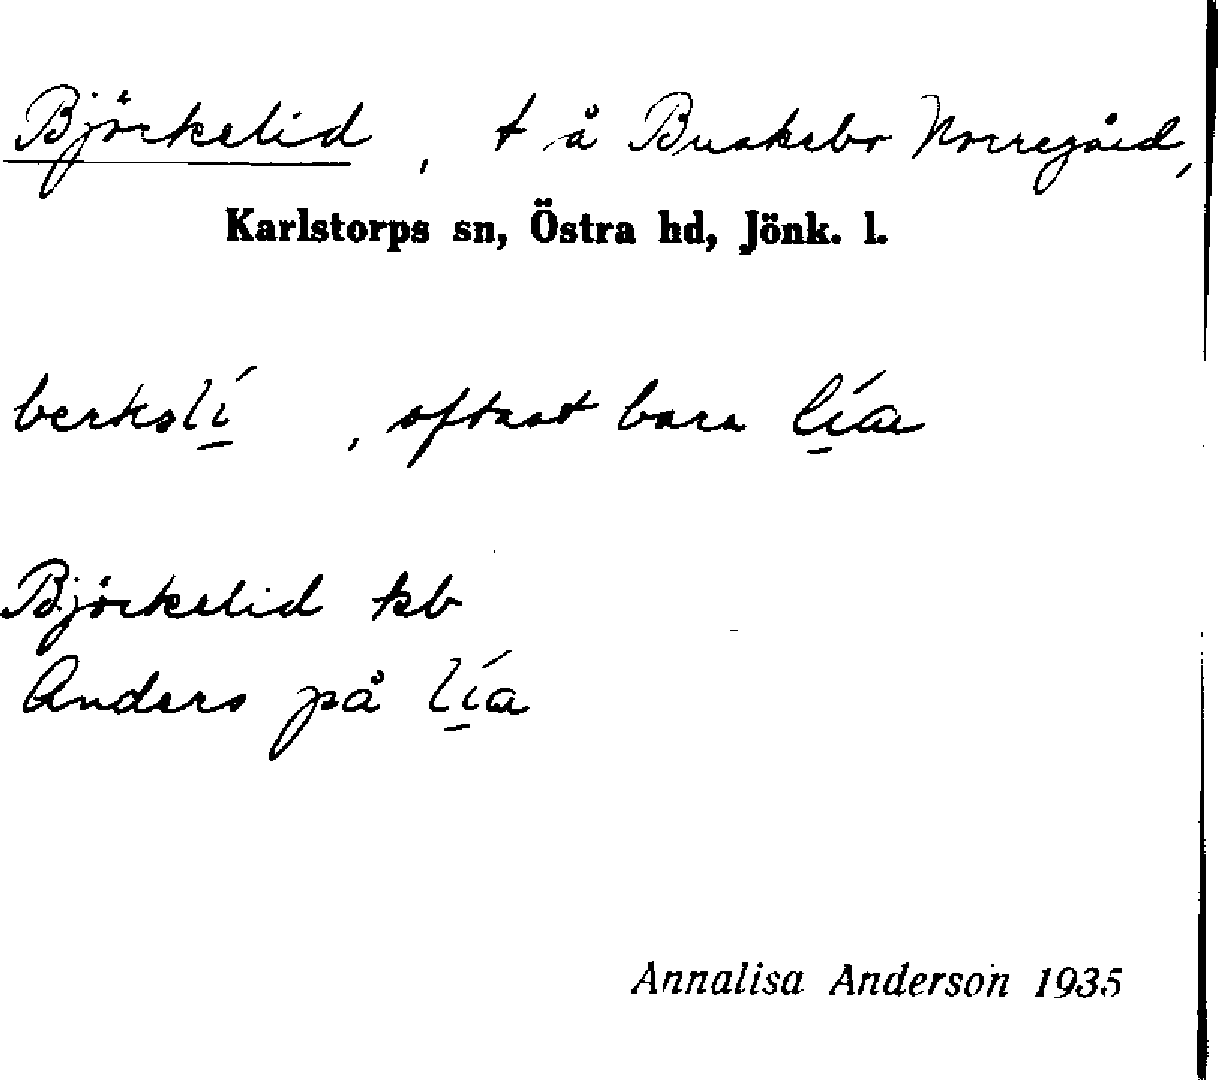 Björkelid, t å Buskebo Norregård,
Karlstorps sn, Östra hd, Jönk. l.
berkəlí̱, oftast bara lí̱a
Björkelid kb
Anders på lí̱a
Annalisa Anderson 1935